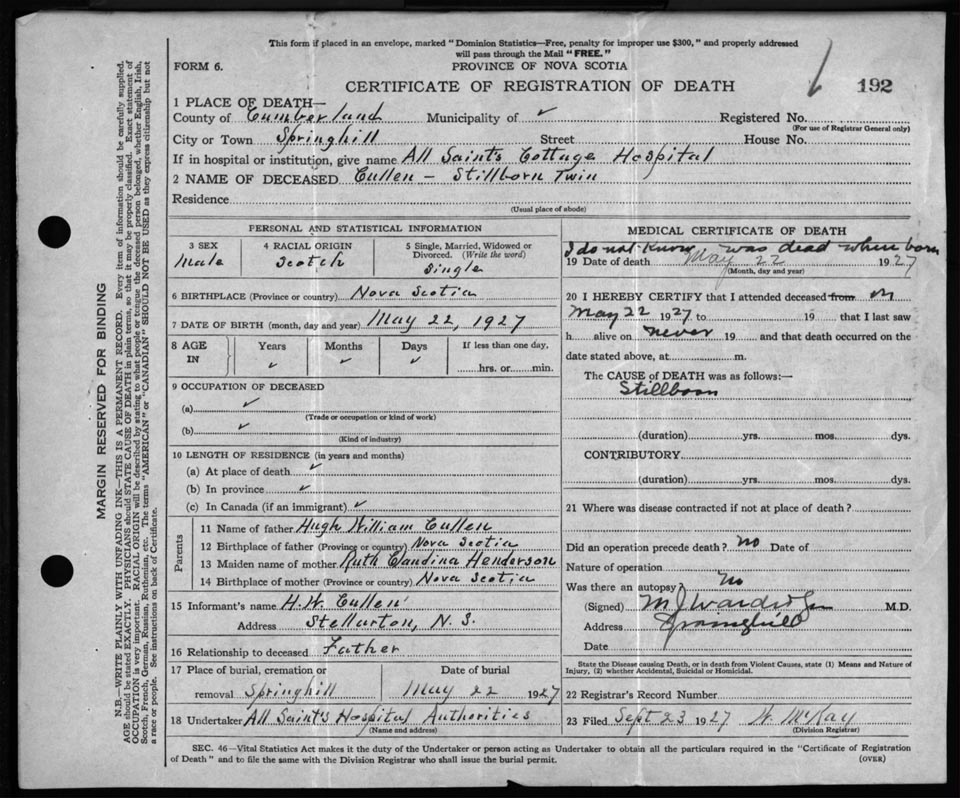 This form if placed in an envelope, marked "Dominion Statistics—Free, penalty for improper use $300," and properly addressed
will pass through the Mail "FREE."
FORM 6.
PROVINCE OF NOVA SCOTIA
CERTIFICATE OF REGISTRATION OF DEATH
192
1 PLACE OF DEATH—
County of Cumberland Municipality of ✓ Registered No.
(For use of Registrar General only)
City or Town Springhill Street House No.
If in hospital or institution, give name All Saints Cottage Hospital
2 NAME OF DECEASED Cullen – Stillborn Twin
Residence
(Usual place of abode)
PERSONAL AND STATISTICAL INFORMATION
3 SEX 4 RACIAL ORIGIN 5 Single, Married, Widowed or Divorced. (Write the word)
Male Scotch Single
6 BIRTHPLACE (Province or country) Nova Scotia
7 DATE OF BIRTH (month, day and year) May 22, 1927
8 AGE IN Years Months Days If less than one day,
✓ ✓ ✓ hrs. or min.
9 OCCUPATION OF DECEASED
(a) ✓
(Trade or occupation or kind of work)
(b) ✓
(Kind of industry)
10 LENGTH OF RESIDENCE (in years and months)
(a) At place of death ✓
(b) In province ✓
(c) In Canada (if an immigrant) ✓
Parents
11 Name of father Hugh William Cullen
12 Birthplace of father (Province or country) Nova Scotia
13 Maiden name of mother Ruth Henderson
14 Birthplace of mother (Province or country) Nova Scotia
15 Informant's name H. W. Cullen
Address Stellarton, N. S.
16 Relationship to deceased Father
17 Place of burial, cremation or Date of burial
removal Springhill May 22 1927
18 Undertaker All Saint's Hospital Authorities
(Name and address)
MEDICAL CERTIFICATE OF DEATH
I do not know, was dead when born
19 Date of death May 22 1927
(Month, day and year)
20 I HEREBY CERTIFY that I attended deceased from on
May 22 1927 to 19 that I last saw
h alive on never 19 and that death occurred on the
date stated above, at m.
The CAUSE of DEATH was as follows:—
Stillborn
(duration) yrs. mos. dys.
CONTRIBUTORY
(duration) yrs. mos. dys.
21 Where was disease contracted if not at place of death?
Did an operation precede death? no Date of
Nature of operation
Was there an autopsy? no
(Signed) M.D.
Address Springhill
Date
State the Disease causing Death, or in death from Violent Causes, state (1) Means and Nature of
Injury, (2) whether Accidental, Suicidal or Homicidal.
22 Registrar's Record Number
23 Filed Sept 23 1927 W. McKay
(Division Registrar)
SEC. 46—Vital Statistics Act makes it the duty of the Undertaker or person acting as Undertaker to obtain all the particulars required in the "Certificate of Registration
of Death" and to file the same with the Division Registrar who shall issue the burial permit.
(OVER)
MARGIN RESERVED FOR BINDING
N.B.—WRITE PLAINLY WITH UNFADING INK—THIS IS A PERMANENT RECORD. Every item of information should be carefully supplied.
AGE should be stated EXACTLY. PHYSICIANS should STATE CAUSE OF DEATH in plain terms, so that it may be properly classified. Exact statement of
OCCUPATION is very important. RACIAL ORIGIN will be described by stating to what people or tongue the deceased person belonged, whether English, Irish,
Scotch, French, German, Russian, Ruthenian, etc. The terms "AMERICAN" or "CANADIAN" SHOULD NOT BE USED as they express citizenship but not
a race or people. See instructions on back of Certificate.